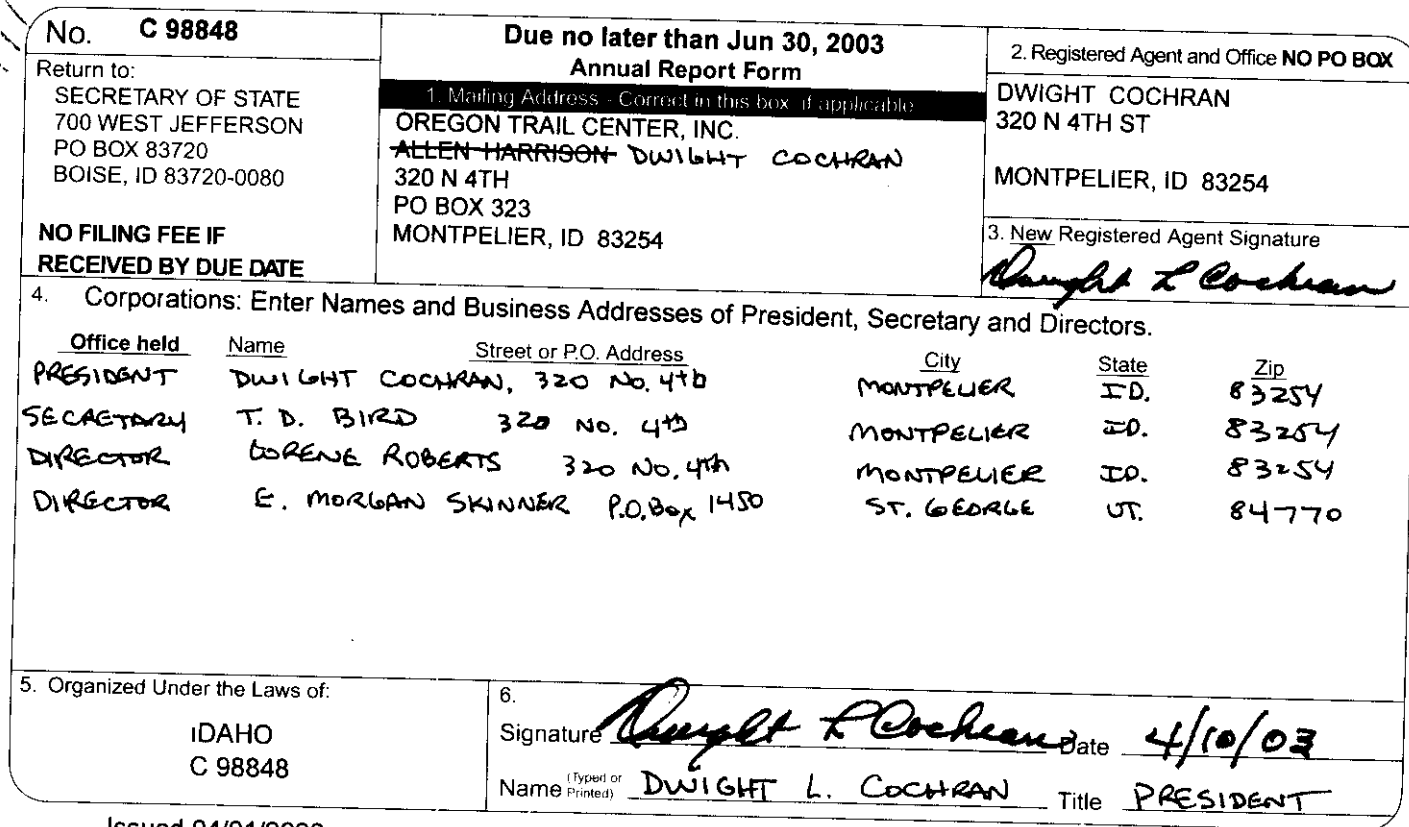 No. C 98848
Return to:
SECRETARY OF STATE
700 WEST JEFFERSON
PO BOX 83720
BOISE, ID 83720-0080
NO FILING FEE IF
RECEIVED BY DUE DATE
Due no later than Jun 30, 2003
Annual Report Form
1. Mailing Address - Correct in this box if applicable
OREGON TRAIL CENTER, INC.
ALLEN HARRISON DWIGHT COCHRAN
320 N 4TH
PO BOX 323
MONTPELIER, ID 83254
2. Registered Agent and Office NO PO BOX
DWIGHT COCHRAN
320 N 4TH ST
MONTPELIER, ID 83254
3. New Registered Agent Signature
Dwight L Cochran
4. Corporations: Enter Names and Business Addresses of President, Secretary and Directors.
Office held Name Street or P.O. Address City State Zip
PRESIDENT DWIGHT COCHRAN, 320 No. 4th MONTPELIER ID. 83254
SECRETARY T. D. BIRD 320 No. 4th MONTPELIER ID. 83254
DIRECTOR LORENE ROBERTS 320 No. 4th MONTPELIER ID. 83254
DIRECTOR E. MORGAN SKINNER P.O. Box 1450 ST. GEORGE UT. 84770
5. Organized Under the Laws of:
IDAHO
C 98848
6.
Signature Dwight L Cochran Date 4/10/03
Name (Typed or Printed) DWIGHT L. COCHRAN Title PRESIDENT